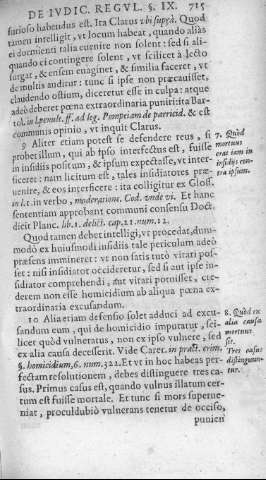 DE IVDIC. REGVL. §. IX. 715
furioso habendus est. Ita Clarus vbi suprà. Quod
tamen intelligit, vt locum habeat, quando aliàs
ei dormienti talia euenire non solent: sed si ali-
quando ei contingere solent, vt scilicet à lecto
surgat, & ensem euaginet, & similia faceret, vt
de multis auditur: tunc si ipse non præcauisset,
claudendo ostium, diceretur esse in culpa: atque
adeò deberet pœna extraordinaria puniri: ita Bar-
tol. in l. penult. ff. ad leg. Pompeiam de parricid. & est
communis opinio, vt inquit Clarus.
9 Aliter etiam potest se defendere reus, si
probet illum, qui ab ipso interfectus est, fuisse
in insidiis positum, & ipsum expectasse, vt inter-
ficere: nam licitum est, tales insidiatores præ-
uenire, & eos interficere: ita colligitur ex Glos.
in l. 1. in verbo, moderatione. Cod. vnde vi. Et hanc
sententiam approbant communi consensu Doct.
dicit Planc. lib. 1. delict. cap. 21. num. 12.
7. Quòd
mortuus
erat tum in
insidiis con-
tra ipsum.
Quod tamen debet intelligi, vt procedat, dum-
modò ex huiusmodi insidiis tale periculum adeò
præsens immineret: vt non satis tutò vitari pos-
set: nisi insidiator occideretur, sed si aut ipse in-
sidiator comprehendi, aut vitari potuisset, cre-
derem non esse homicidium ab aliqua pœna ex-
traordinaria excusandum.
10 Aliàs etiam defensio solet adduci ad excu-
sandum eum, qui de homicidio imputatur, sci-
licet quòd vulneratus, non ex ipso vulnere, sed
ex alia causa decesserit. Vide Carer. in pract. crim.
§. homicidium, 6. num. 322. Et vt in hoc habeas per-
fectam resolutionem, debes distinguere tres ca-
sus. Primus casus est, quando vulnus illatum cer-
tum est fuisse mortale. Et tunc si mors superue-
niat, proculdubiò vulnerans tenetur de occiso,
8. Quòd ex
alia causa
mortuus
sit.
Tres casus
distinguun-
tur.
punien